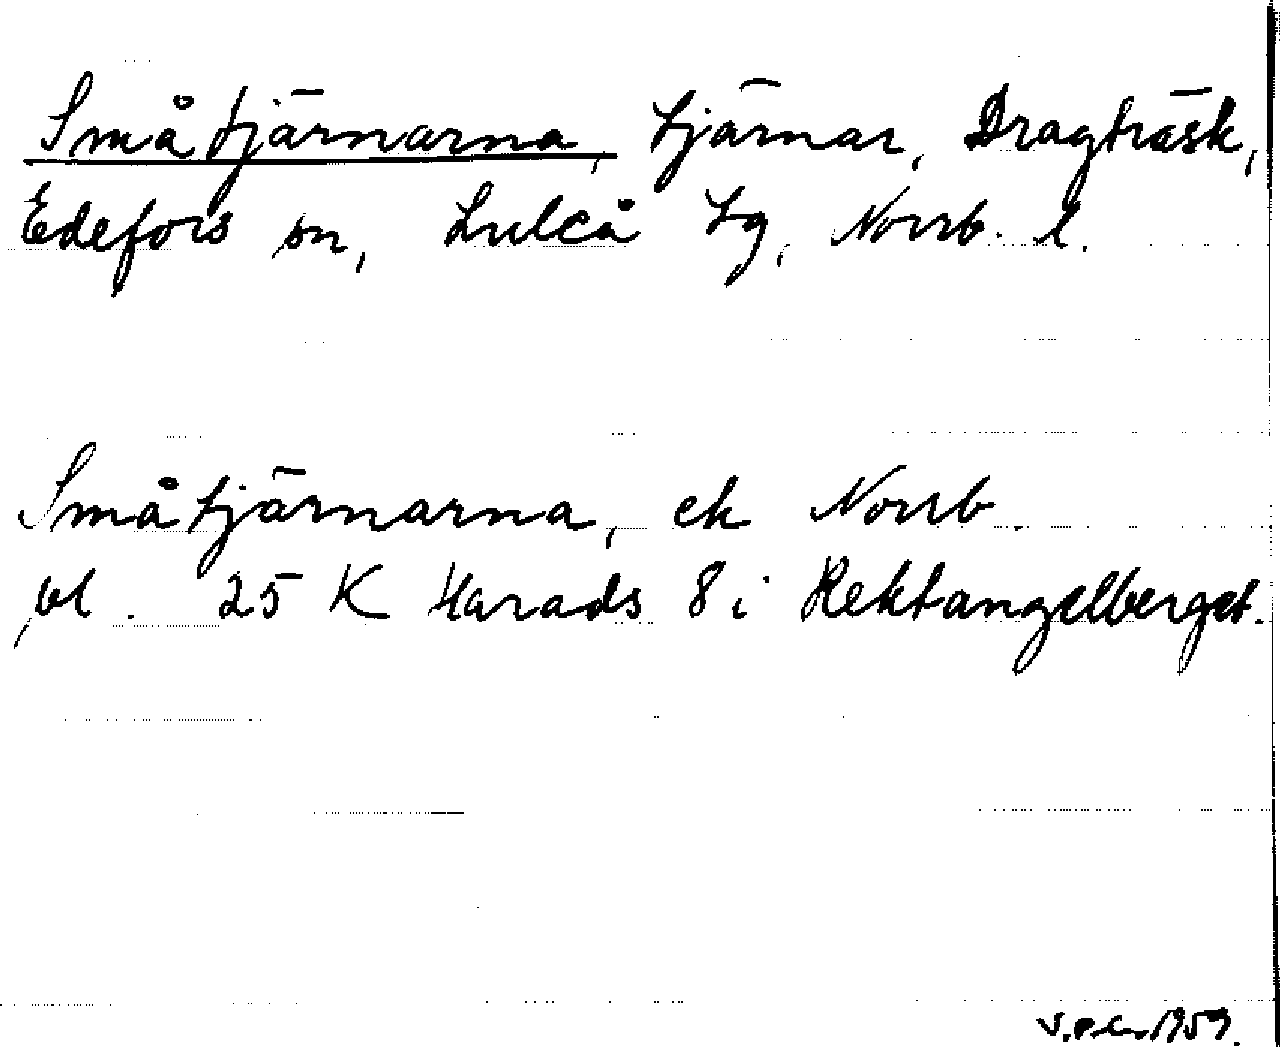 Småtjärnarna, tjärnar, Dragträsk,
Edefors sn, Luleå tg, Norrb. l.
Småtjärnarna, ek Norrb.
bl. 25 K Harads 8 i Rektangelberget.
1959.